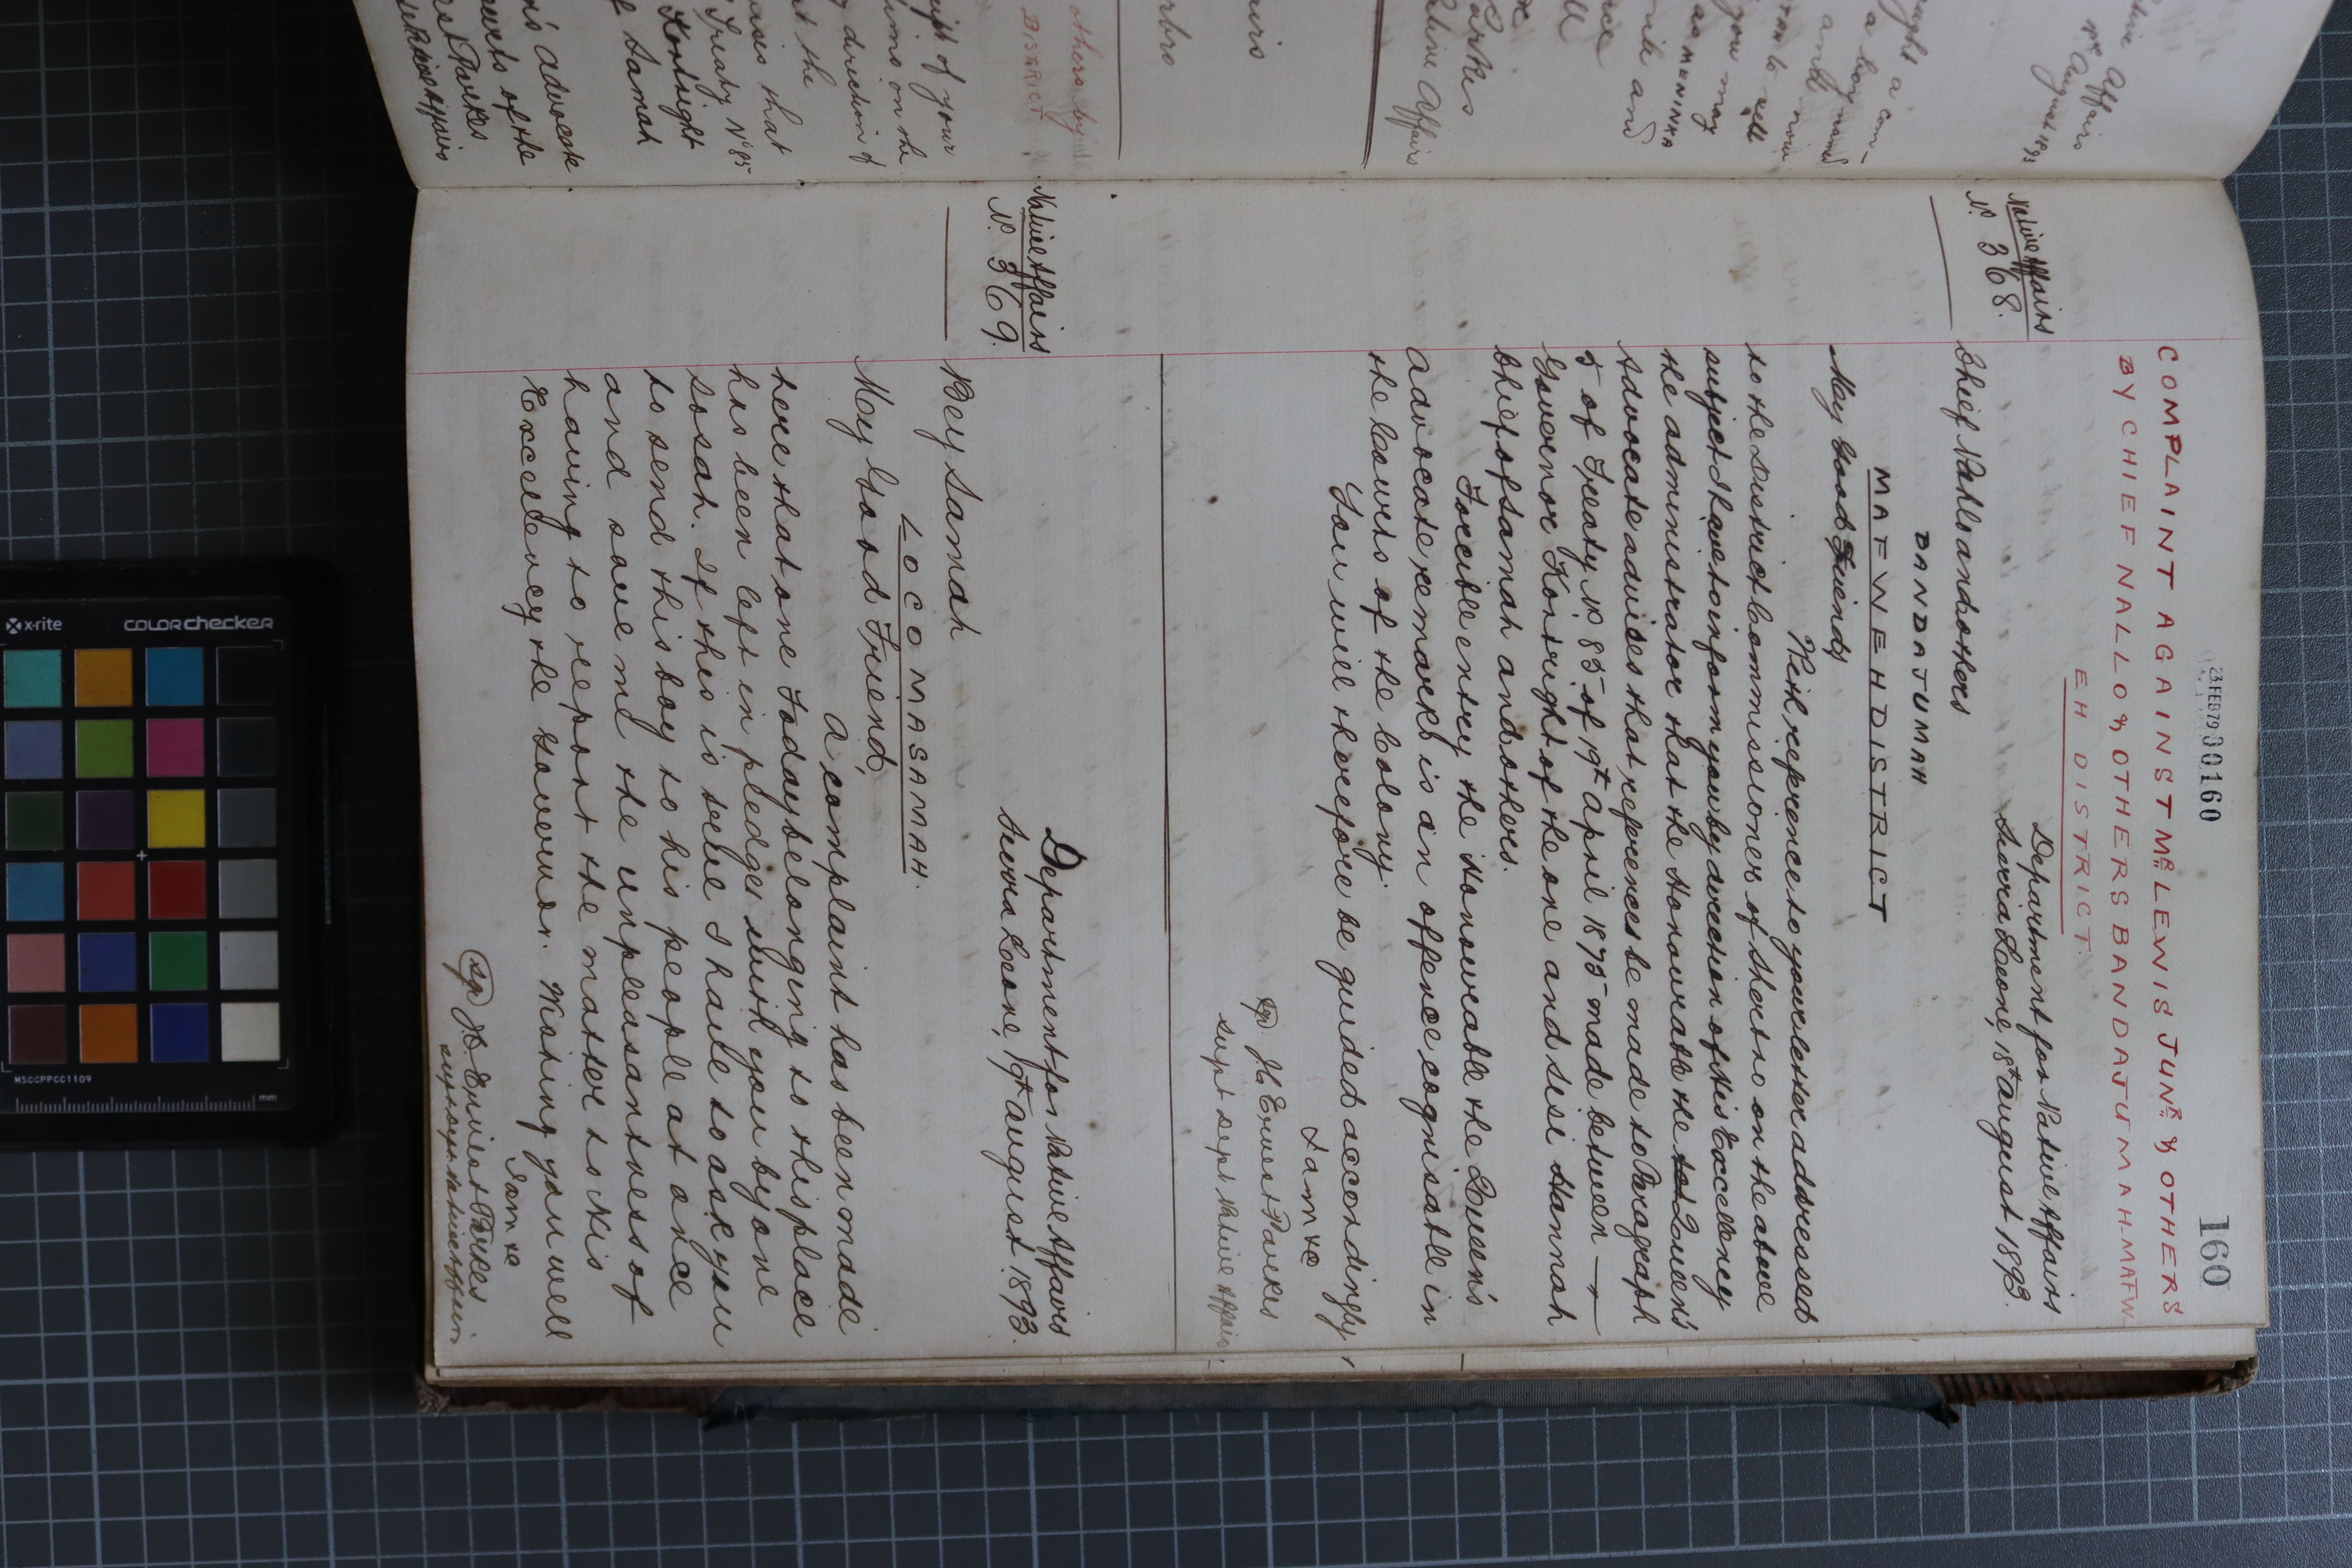 23 FEB 79 00160
160
COMPLAINT AGAINST MR LEWIS JUNR & OTHERS
BY CHIEF NALLO & OTHERS BANDAJUMAH-MAFW-
EH DISTRICT.
Native Affairs
No. 368.
Department for Native Affairs
Sierra Leone, 18th August 1893.
Chief Nallo and others
BANDAJUMAH
MAFWEH DISTRICT
My Good Friends
With reference to your letter addressed
to the District Commissioner of Sherbro on the above
subject I have to inform you by direction of His Excellency
the administrator that the Honourable the Queen's
Advocate advises that references be made to Paragraph
5 of Treaty No 85 of 19th April 1875 made between
Governor Kortright of the one and Sesi Hannah
Chief of Samah and others.
Forcible entry the Honourable the Queen's
Advocate remarks is an offence cognisable in
the Courts of the Colony.
You will therefore be guided accordingly
I am &c
Sgd J C Ernest Parkes
Supt Dept Native Affairs
Native Affairs
No. 369.
Department for Native Affairs
Sierra Leone, 19th August 1893.
Bey Samah
LOCO MASAMAH.
My Good Friend,
A complaint has been made
here that one Foday belonging to this place
has been left in pledge with you by one
Sosah. If this is true I have to ask you
to send this boy to his people at once
and save me the unpleasantness of
having to report the matter to His
Excellency the Governor. Wishing you well
I am &c
Sgd J C Ernest Parkes
Supt Dept Native Affairs
Native Affairs
August 1893
a com-
a boy named
to sell
you may
as MENINHA
and
Parkes
Native Affairs
others by
DISTRICT
of your
on the
direction of
at the
that
Treaty No 85
Kortright
of Samah
Advocate
Courts of the
Parkes
Native Affairs
x-rite
COLORchecker
MSCCPPCC1109
mm